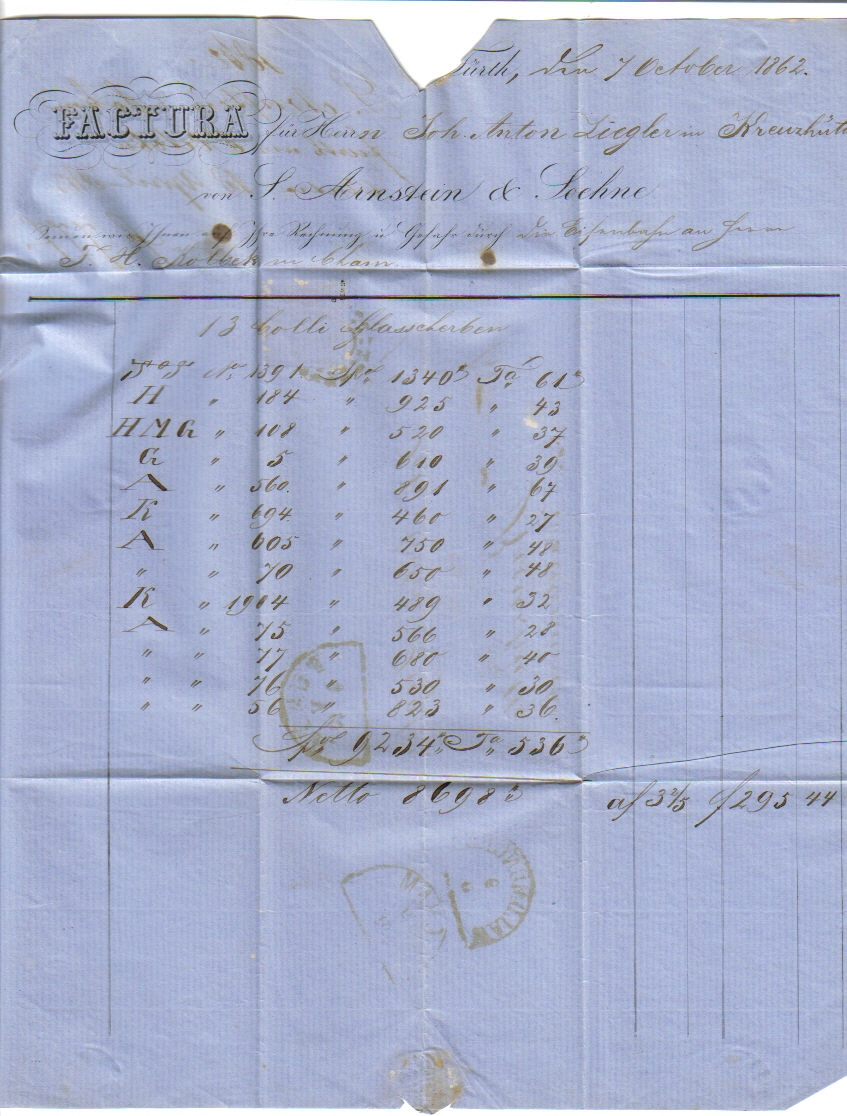 Fürth, den 7 October 1862.
FACTURA für Herrn Joh. Anton Ziegler in Kreuzhütt
von S. Arnstein & Soehne
Senden wir Ihnen auf Ihre Rechnung u Gefahr durch die Eisenbahn an Herrn
J. H. in Cham
13 Colli Glasscherben
No 1391 Spo 1340 Ta 61
H " 184 " 925 " 43
HMG " 108 " 520 " 37
G " 5 " 610 " 39
A " 560. " 891 " 67
K " 694 " 460 " 27
A " 605 " 750 " 48
" " 70 " 650 " 48
K " 1904 " 489 " 32
A " 75 " 566 " 28
" " 77 " 680 " 40
" " 76 " 530 " 30
" " 56 " 823 " 36
Spo 9234 Ta 536
Netto 8698 a f 3 2/5 f 295 44